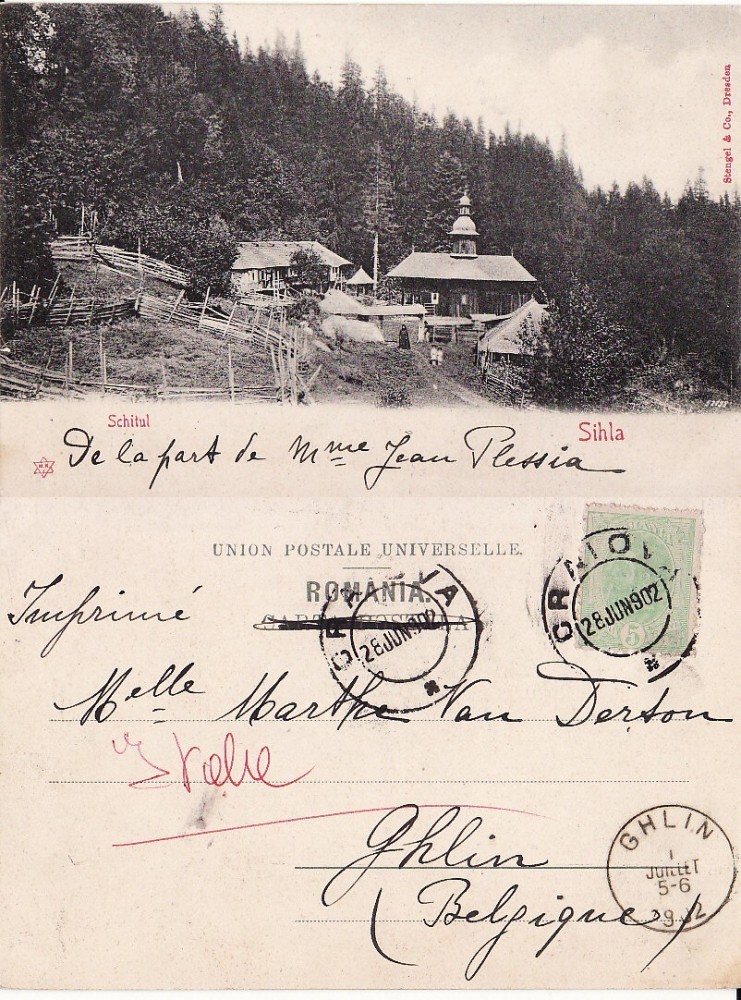 Stengel & Co., Dresden
Schitul
Sihla
De la part de Mme Jean Plessia
UNION POSTALE UNIVERSELLE.
ROMÂNIA.
CARTE POSTALA
Imprimé
CRAIOVA
28JUN902
CRAIOVA
28JUN902
5
Melle Marthe Van Derton
Ghlin
(Belgique)
GHLIN
1
JUILLET
5-6
1902